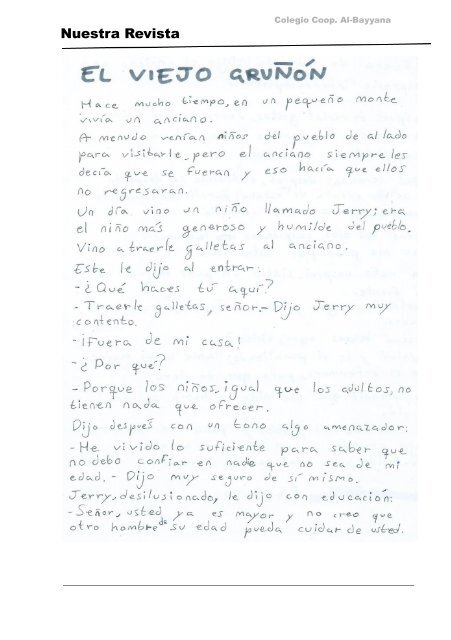 Colegio Coop. Al-Bayyana
Nuestra Revista
EL VIEJO GRUÑÓN
Hace mucho tiempo, en un pequeño monte
vivía un anciano.
A menudo venían niños del pueblo de al lado
para visitarle, pero el anciano siempre les
decía que se fueran y eso hacía que ellos
no regresaran.
Un día vino un niño llamado Jerry; era
el niño más generoso y humilde del pueblo.
Vino a traerle galletas al anciano.
Este le dijo al entrar:
-¿Qué haces tú aquí?
- Traerle galletas, señor.- Dijo Jerry muy
contento.
-¡Fuera de mi casa!
-¿Por qué?
-Porque los niños, igual que los adultos, no
tienen nada que ofrecer.
Dijo después con un tono algo amenazador:
-He vivido lo suficiente para saber que
no debo confiar en nadie que no sea de mi
edad.- Dijo muy seguro de sí mismo.
Jerry, desilusionado, le dijo con educación:
-Señor, usted ya es mayor y no creo que
otro hombre de su edad pueda cuidar de usted.